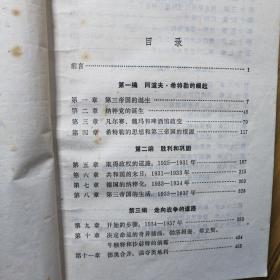 目录
前言 1
第一编 阿道夫·希特勒的崛起
第一章 第三帝国的诞生 7
第二章 纳粹党的诞生
第三章 凡尔赛、魏玛和啤酒馆政变
第四章 希特勒的思想和第三帝国的根源
第二编 胜利和巩固
第五章 取得政权的道路:1925—1931年
第六章 共和国的末日:1931—1933年
第七章 德国的纳粹化:1933—1934年
第八章 第三帝国的生活:1933—1937年
第三编 走向战争的道路
第九章 开始的步骤:1934—1937年
第十章
第十一章 德奥合并